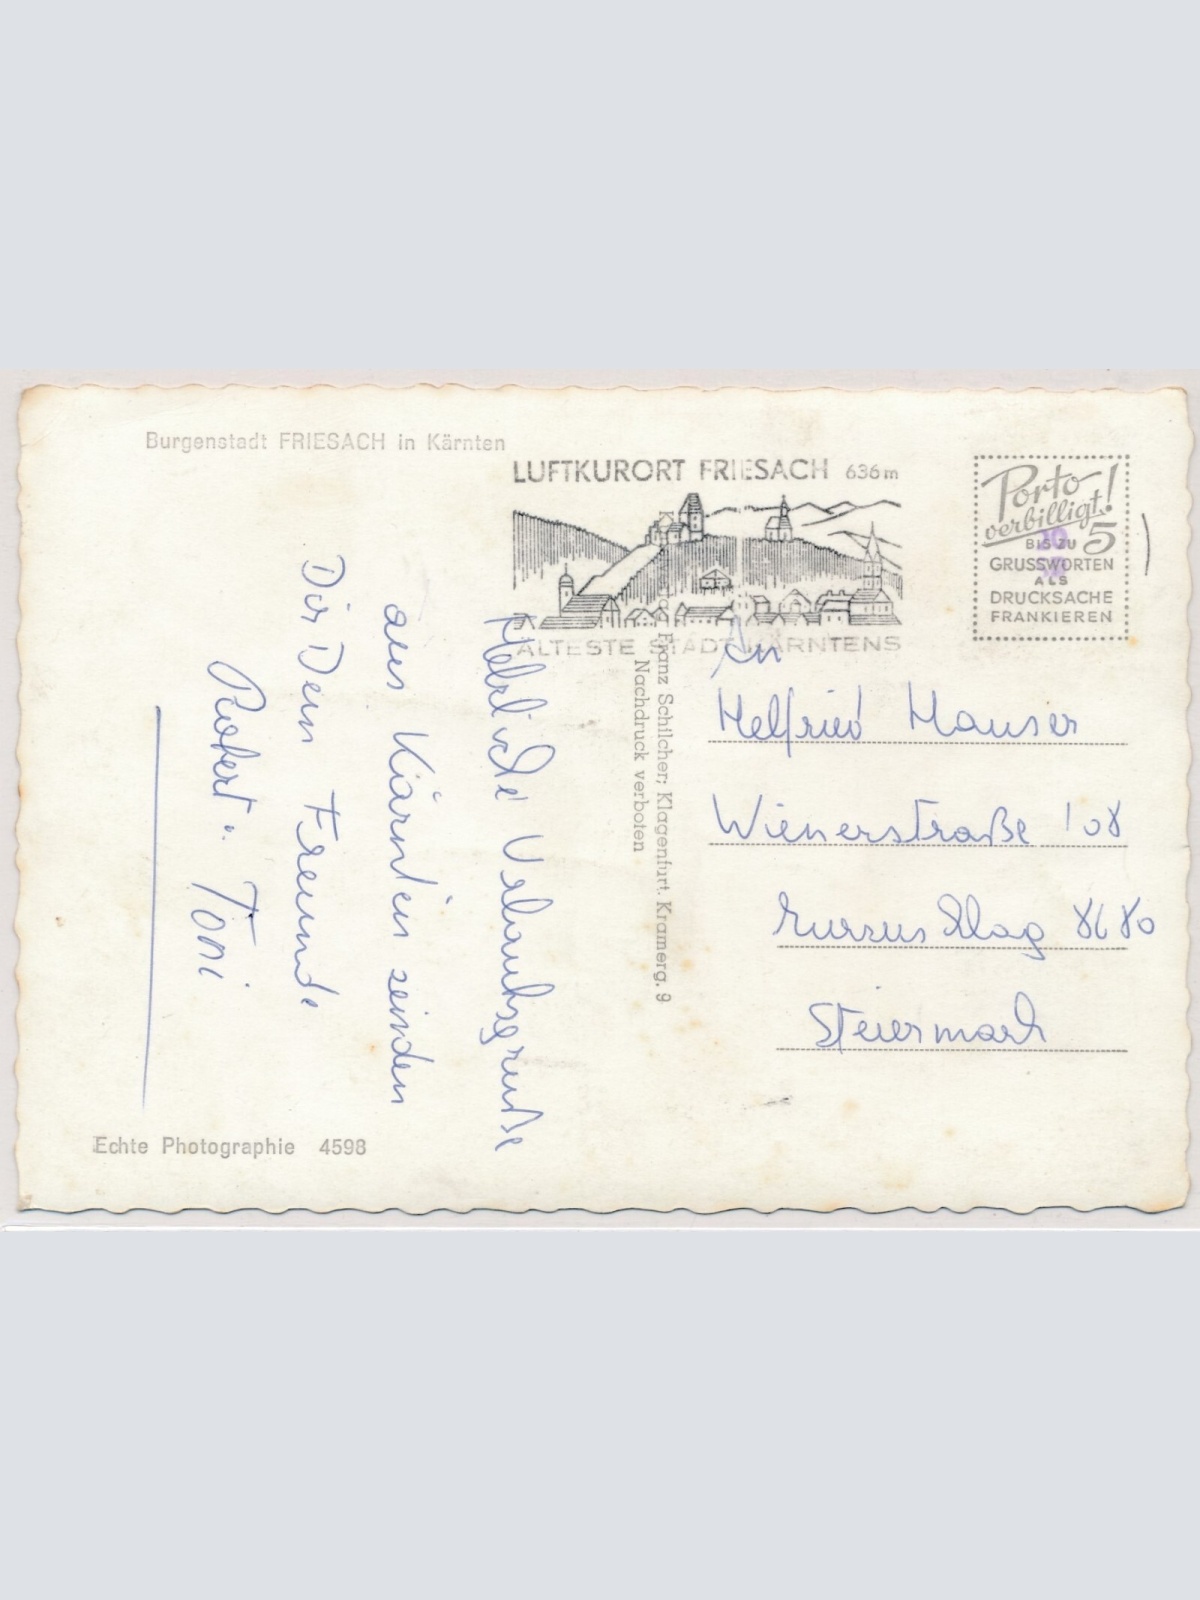 Burgenstadt FRIESACH in Kärnten
LUFTKURORT FRIESACH 636m
ÄLTESTE STADT KÄRNTENS
Porto
verbilligt!
BIS ZU 5
GRUSSWORTEN
ALS
DRUCKSACHE
FRANKIEREN
Urlaubsgrüße
aus Kärnten senden
Dir Dein Freunde
Robert u. Toni
Franz Schilcher; Klagenfurt. Kramerg. 9
Nachdruck verboten
An
Helfried Hauser
Wienerstraße 108
8680
Steiermark
Echte Photographie 4598